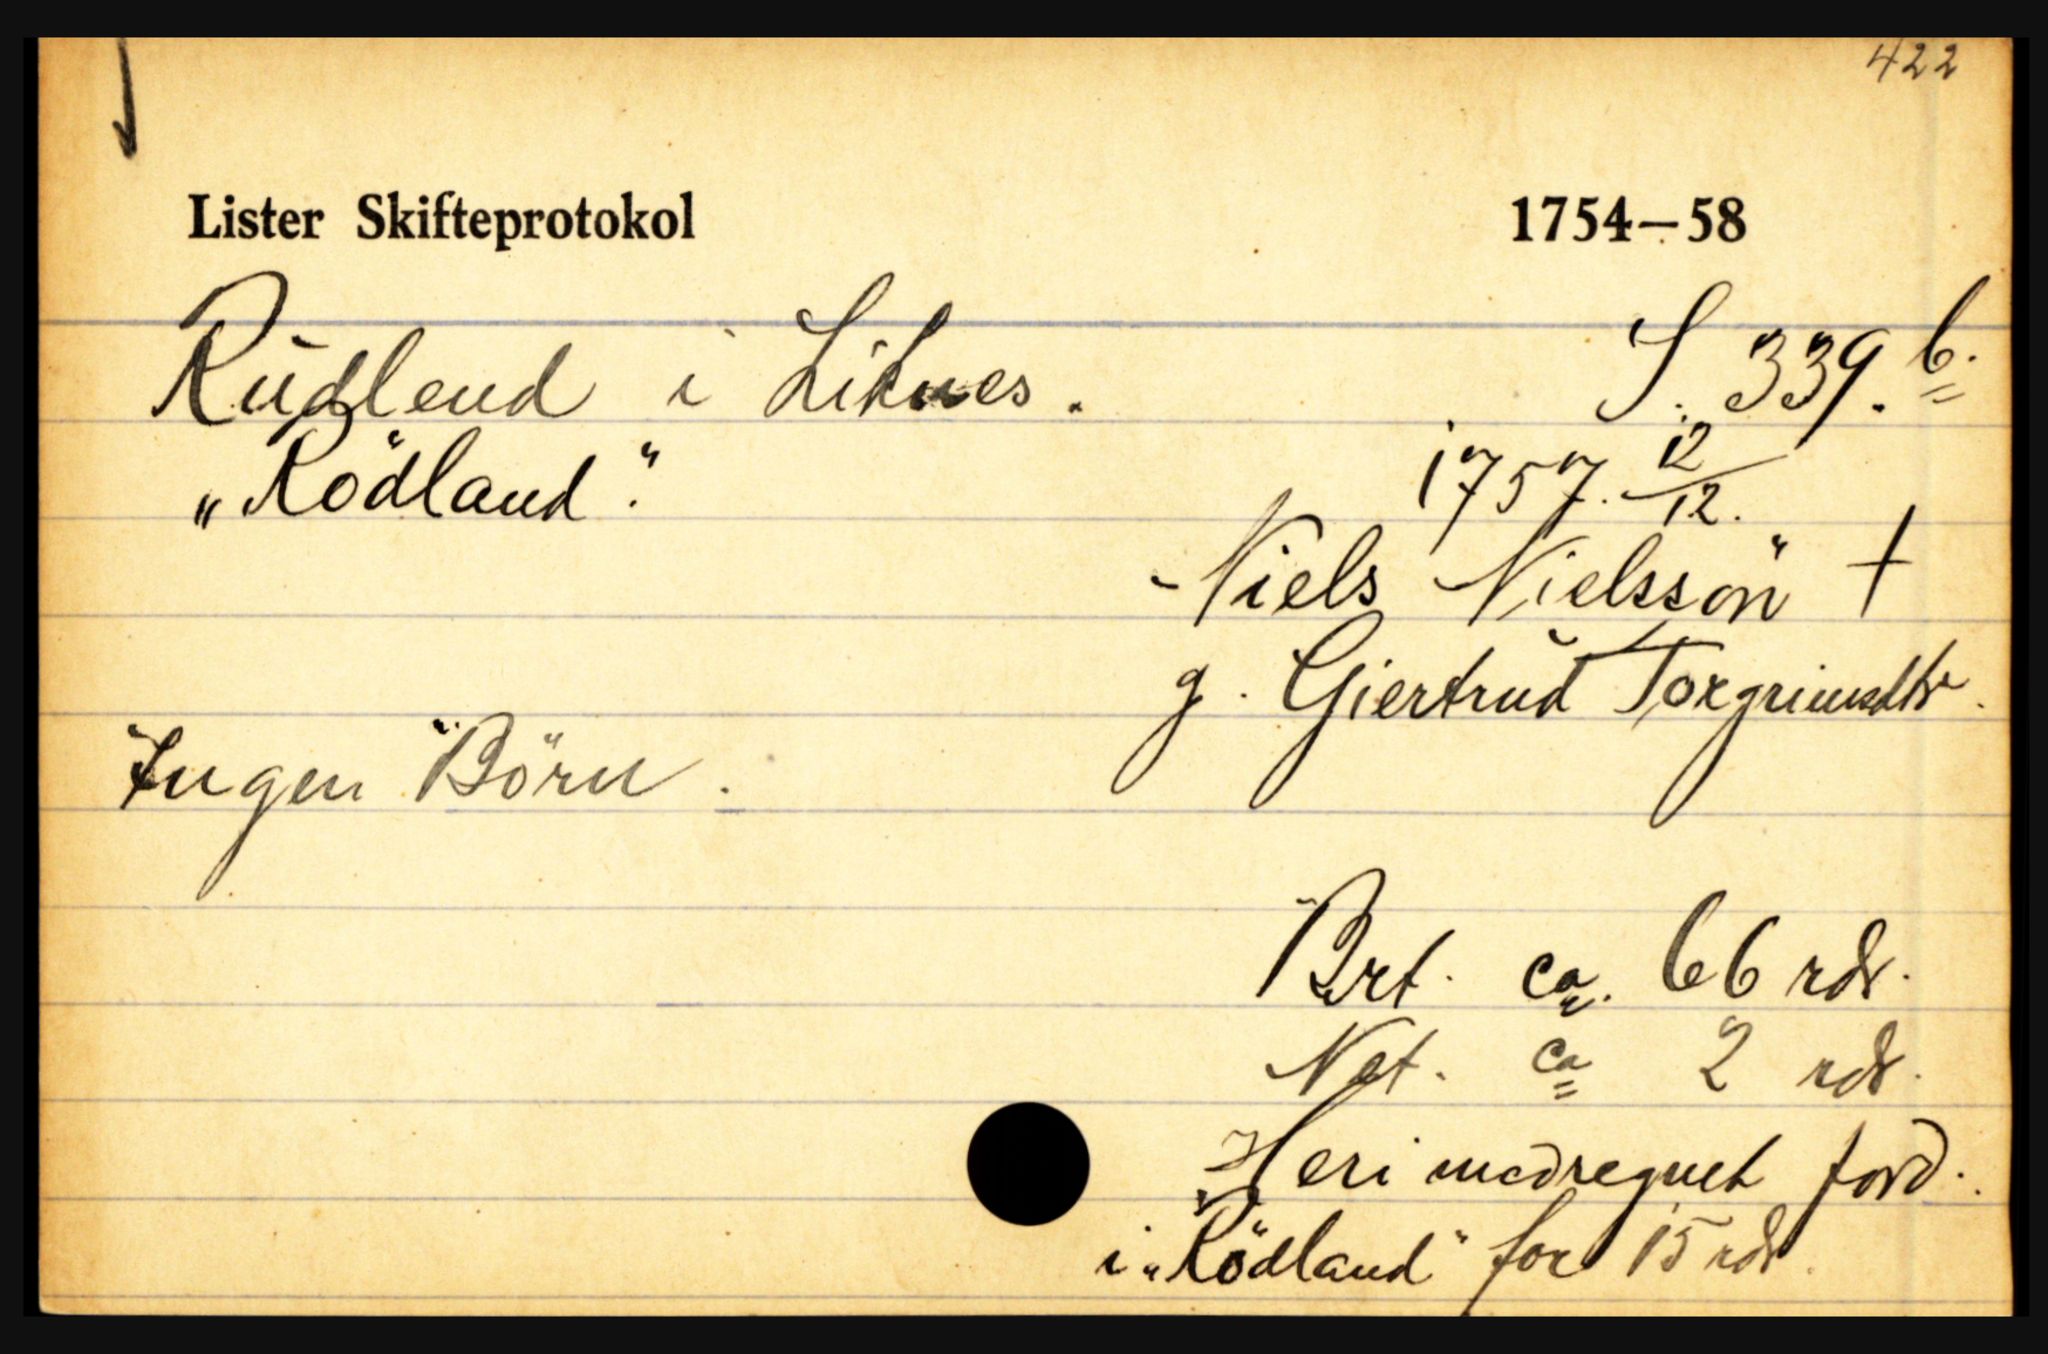 422
Lister Skifteprotokol 1754–58
Rudlend i Liknes. S. 339. b.
„Rödland". 1757. 12/12.
Niels Nielssön †
g. Giertrud Torgrimsdtr.
Ingen Börn.
Brt. ca. 66 rdr.
Net. ca 2 rdr.
Heri medregnet jord.
i „Rödland" for 15 rdr.